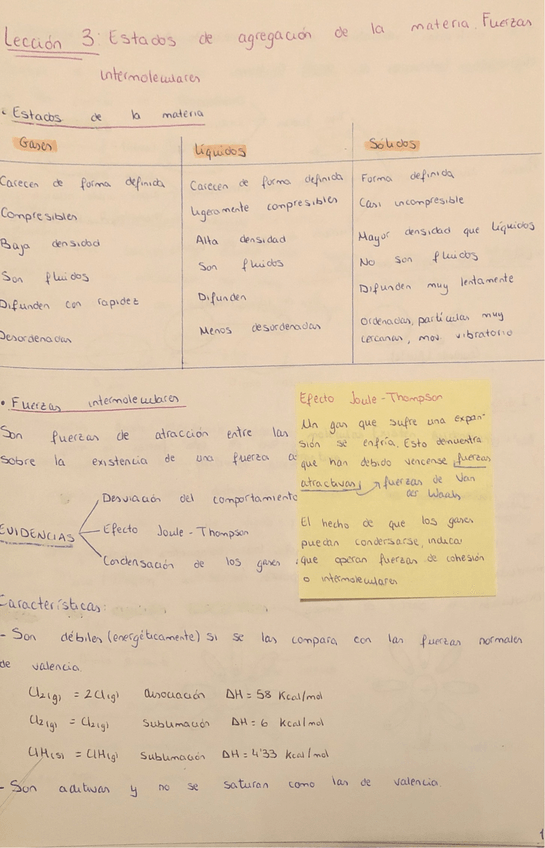 Lección 3: Estados de agregación de la materia. Fuerzas
intermoleculares
• Estados de la materia
Gases
Líquidos
Sólidos
Carecen de forma definida
Carecen de forma definida
Forma definida
Compresibles
Ligeramente compresibles
Casi incompresible
Baja densidad
Alta densidad
Mayor densidad que líquidos
Son fluidos
Son fluidos
No son fluidos
Difunden con rapidez
Difunden
Difunden muy lentamente
Desordenadas
Menos desordenadas
Ordenadas, partículas muy
cercanas, mov. vibratorio
• Fuerzas intermoleculares
Son fuerzas de atracción entre las
sobre la existencia de una fuerza
EVIDENCIAS
Desviación del comportamiento
Efecto Joule-Thompson
Condensación de los gases
Efecto Joule-Thompson
Un gas que sufre una expan-
sión se enfría. Esto demuestra
que han debido vencerse fuerzas
atractivas → fuerzas de Van
der Waals
El hecho de que los gases
puedan condensarse, indica
que operan fuerzas de cohesión
o intermoleculares
Características:
- Son débiles (energéticamente) si se las compara con las fuerzas normales
de valencia.
Cl2(g) = 2Cl(g) disociación ΔH = 58 Kcal/mol
Cl2(g) = Cl2(g) Sublimación ΔH = 6 Kcal/mol
ClH(s) = ClH(g) Sublimación ΔH = 4'33 Kcal/mol
- Son aditivas y no se saturan como las de valencia.
1